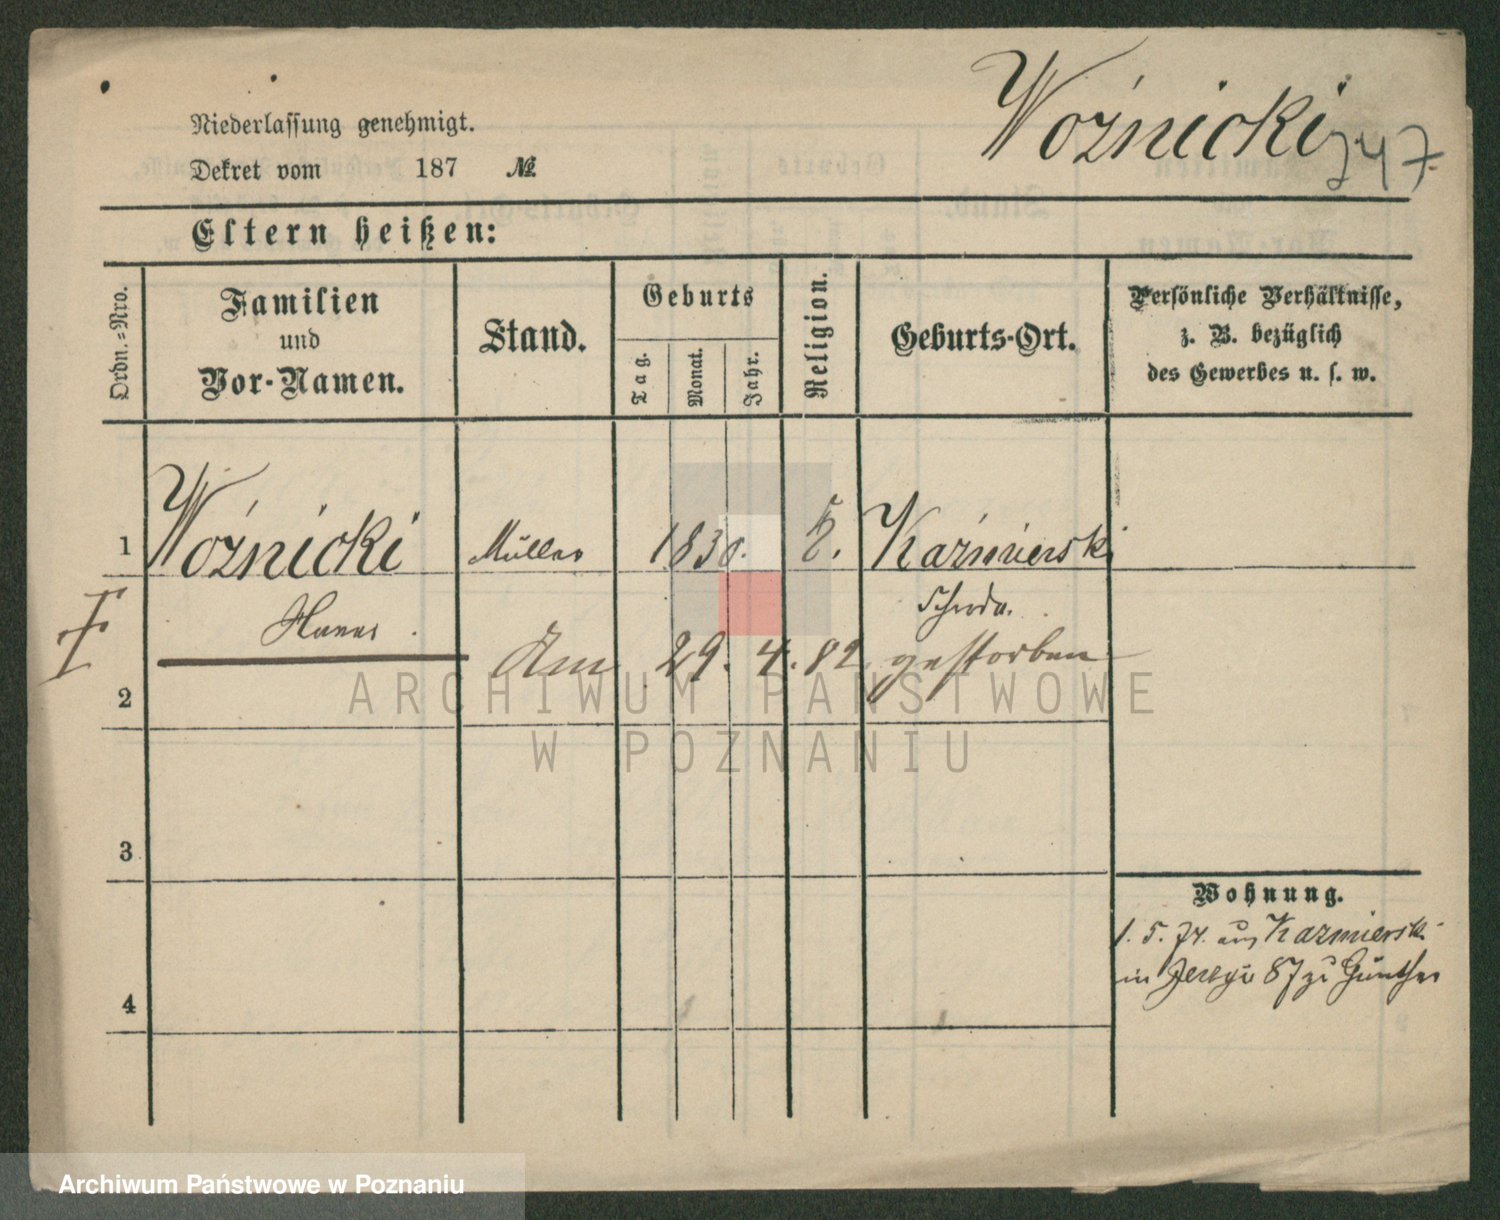 Woźnicki
747.
Niederlassung genehmigt.
Dekret vom 187 №
Eltern heißen:
Ordn.=Nro.
Familien
und
Vor-Namen.
Stand.
Geburts
Tag.
Monat.
Jahr.
Religion.
Geburts-Ort.
Persönliche Verhältnisse,
z. B. bezüglich
des Gewerbes u. s. w.
1 Woźnicki Müller 1830. Kaźmierski
Schroda.
2 Am 29. 4. 82 gestorben
3
4
Wohnung.
1. 5. 74. aus Kazmierski
in 87 zu Günther
ARCHIWUM PAŃSTWOWE
W POZNANIU
Archiwum Państwowe w Poznaniu